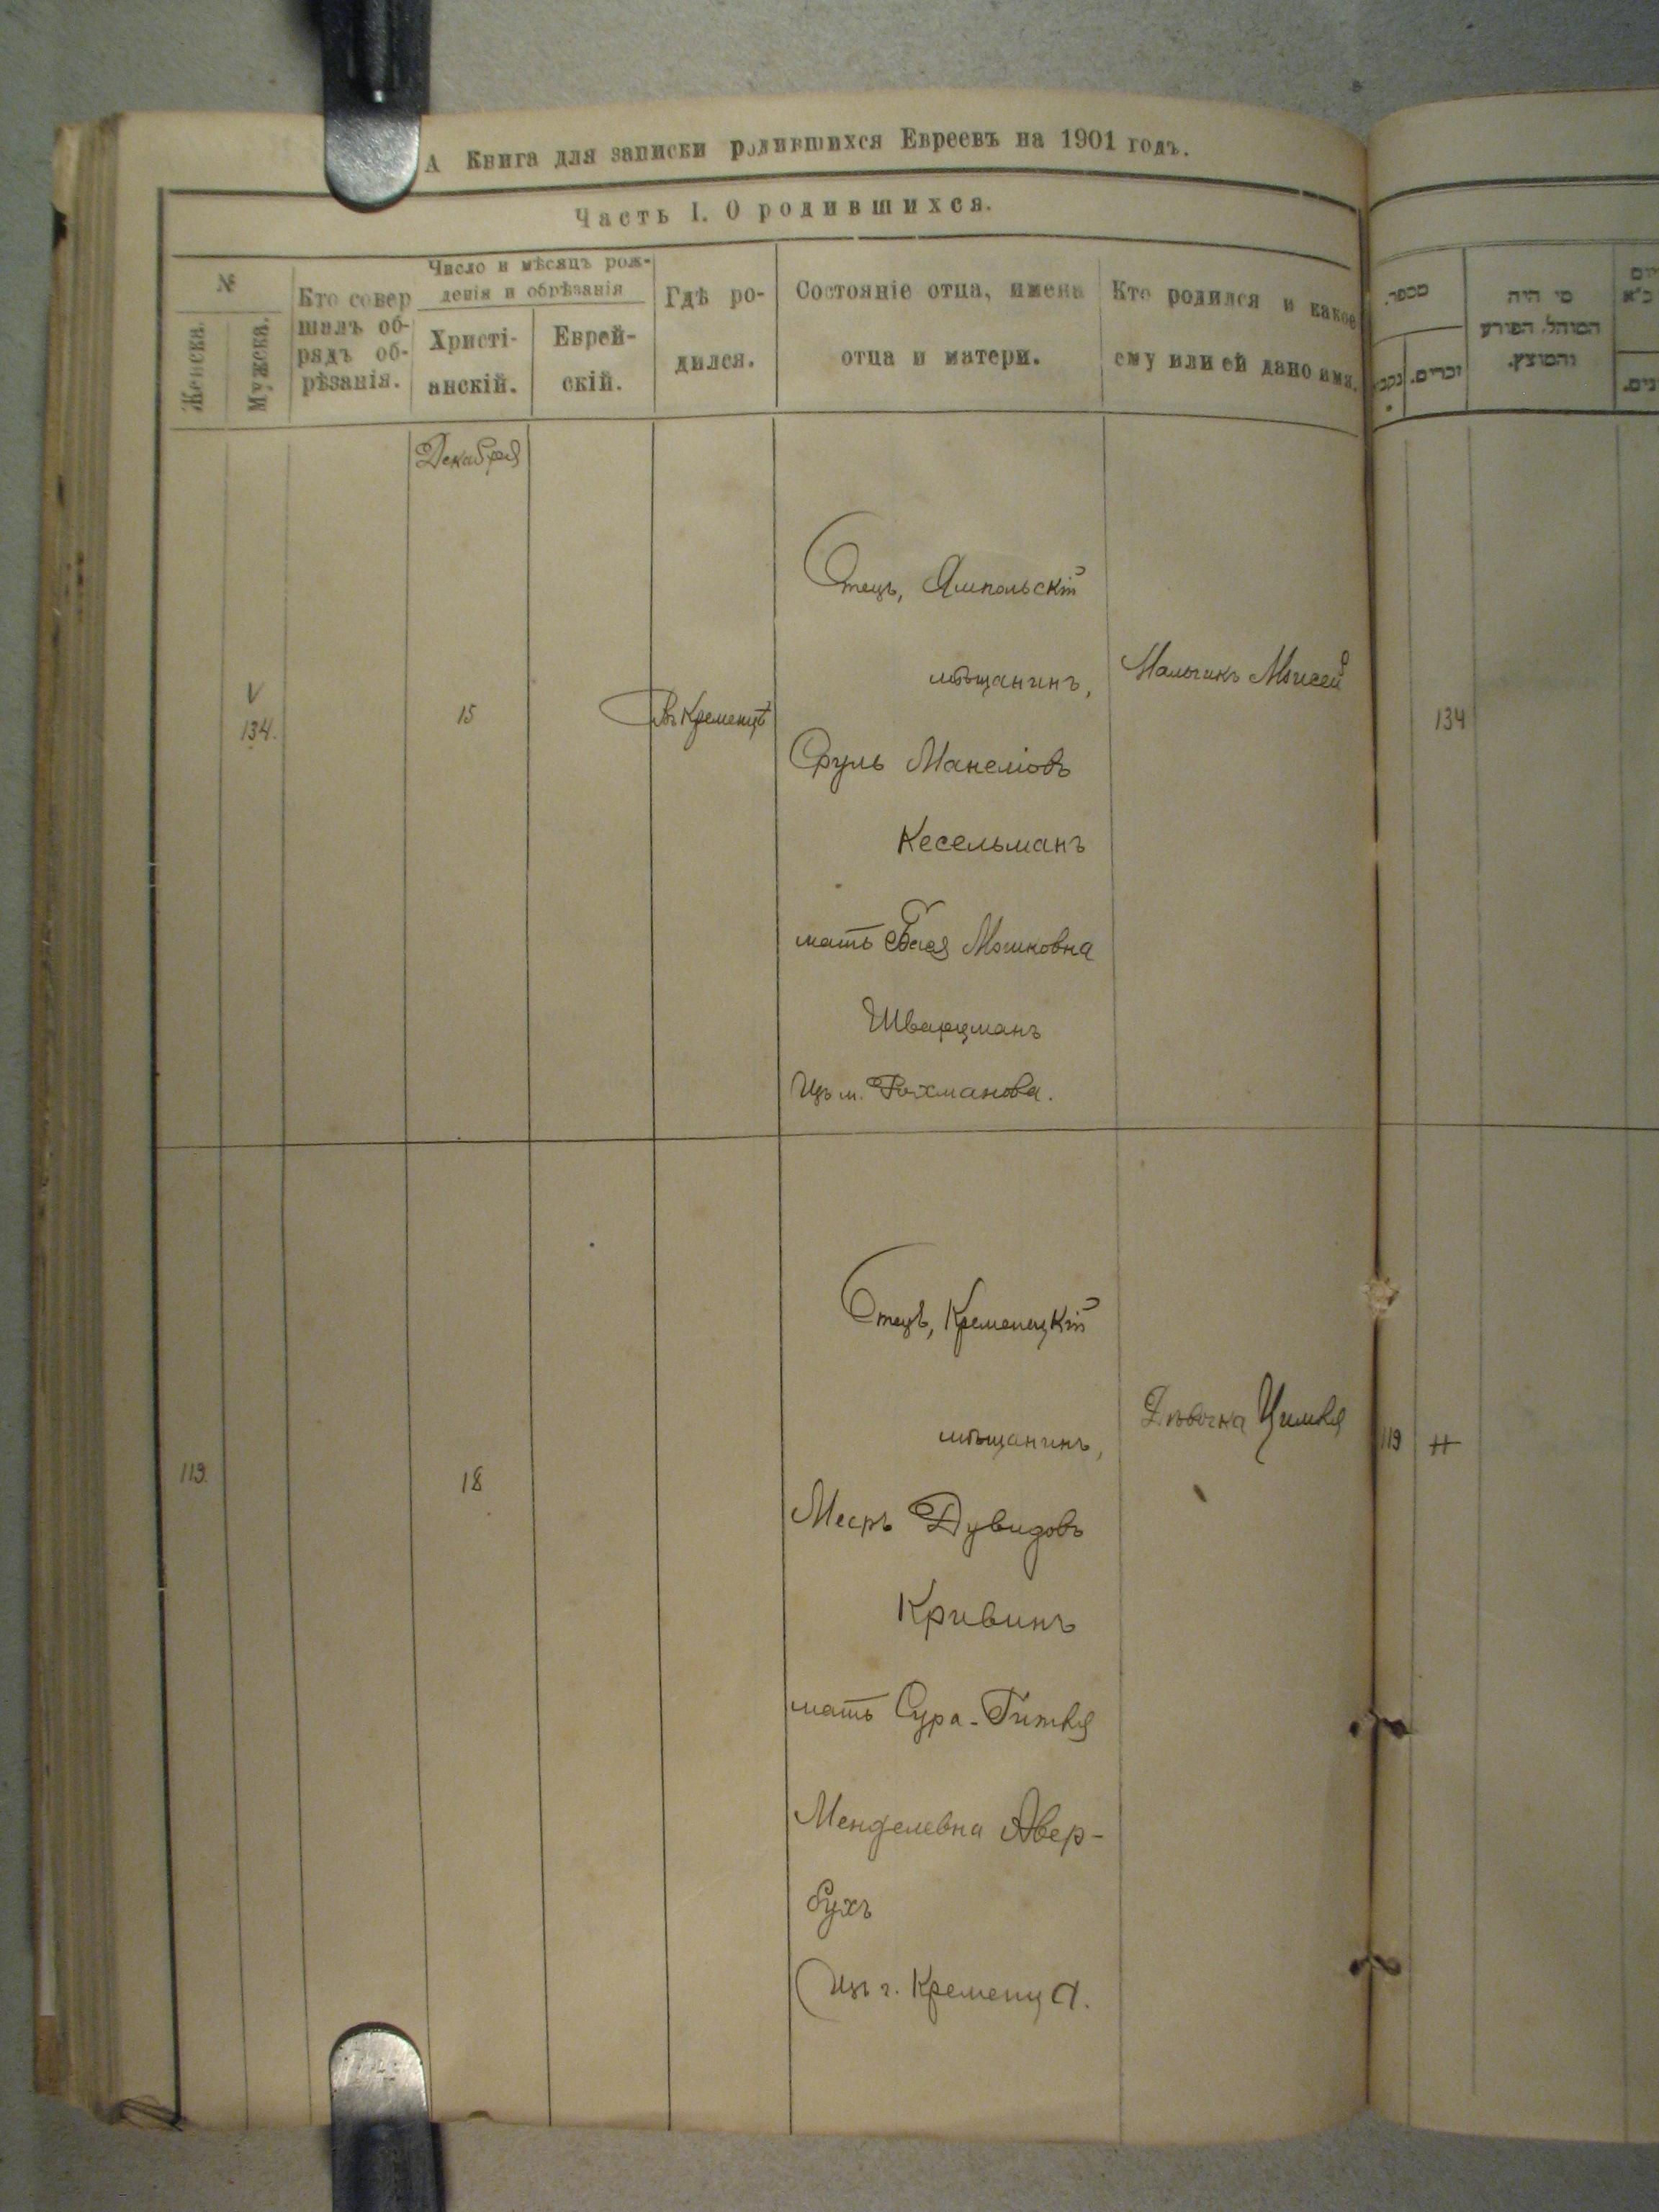 А Книга для записки родившихся Евреевъ на 1901 годъ.
Часть I. О родившихся.
№
Женска.
Мужска.
Кто совер
шалъ об-
рядъ об-
рѣзанія.
Число и мѣсяцъ рож-
денія и обрѣзанія
Христі-
анскій.
Еврей-
скій.
Гдѣ ро-
дился.
Состояніе отца, имена
отца и матери.
Кто родился и какое
ему или ей дано имя.
מספר.
נקב
זכרים.
מי היה
המוהל, הפורע
והמוצץ.
Декабря
V
134.
15
Въ Кременцѣ
Отецъ, Ямпольскій
мѣщанинъ,
Сруль Манелiовъ
Кесельманъ
мать Бася Мошковна
Шварцманъ
Изъ м. Рахманова.
Мальчикъ Моисей
134
119.
18
Отецъ, Кременецкій
мѣщанинъ,
Мееръ Дувидовъ
Кривинъ
мать Сура-Гитля
Менделевна Авер-
бухъ
Изъ г. Кременца.
Дѣвочка Цимля
119